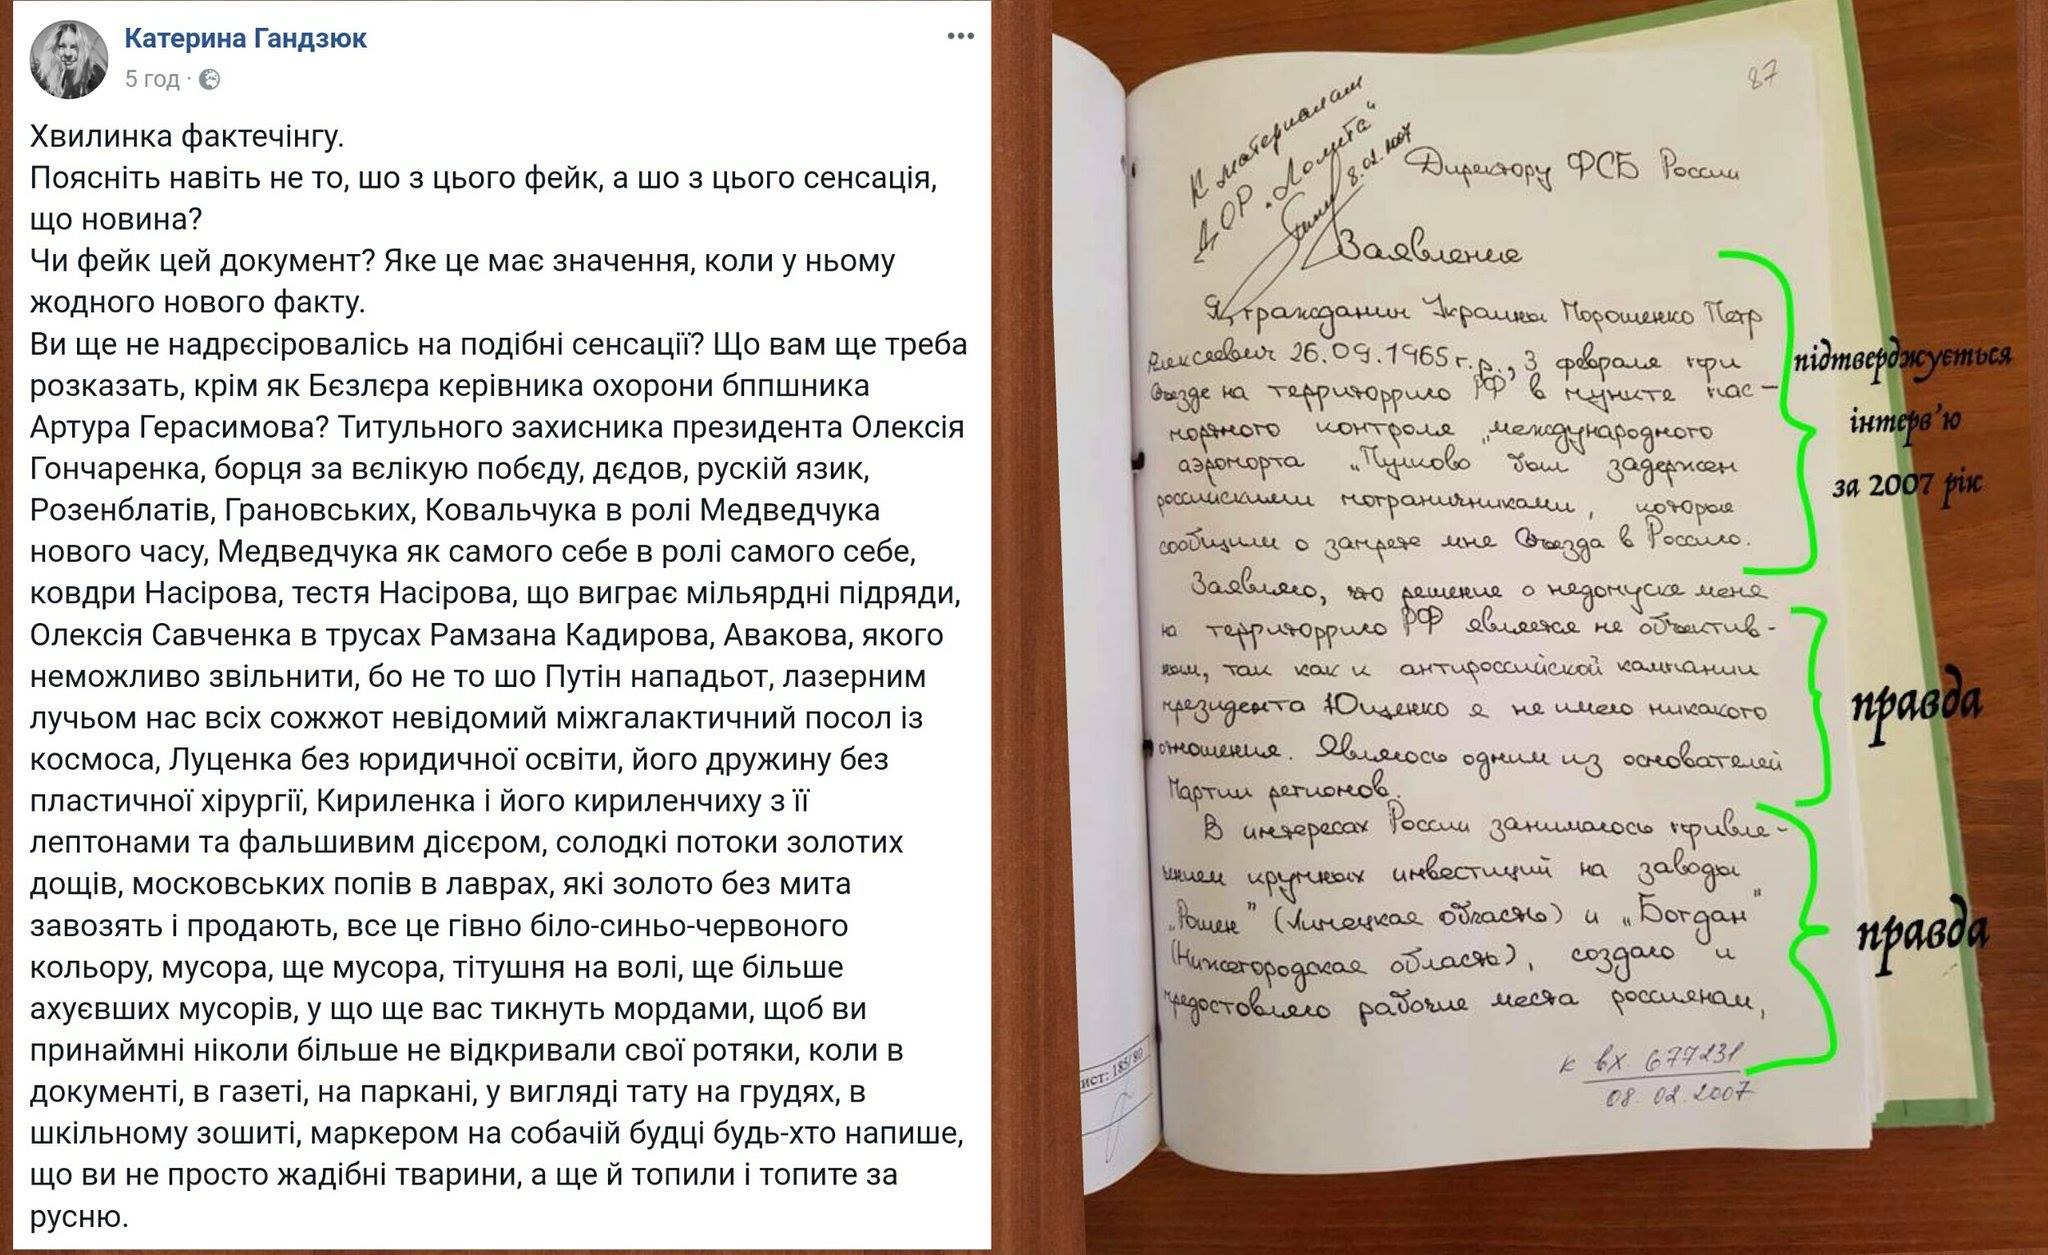 Катерина Гандзюк
5 год
Хвилинка фактечінгу.
Поясніть навіть не то, шо з цього фейк, а шо з цього сенсація,
що новина?
Чи фейк цей документ? Яке це має значення, коли у ньому
жодного нового факту.
Ви ще не надрєсіровалісь на подібні сенсації? Що вам ще треба
розказать, крім як Бєзлєра керівника охорони бппшника
Артура Герасимова? Титульного захисника президента Олексія
Гончаренка, борця за вєлікую побєду, дєдов, рускій язик,
Розенблатів, Грановських, Ковальчука в ролі Медведчука
нового часу, Медведчука як самого себе в ролі самого себе,
ковдри Насірова, тестя Насірова, що виграє мільярдні підряди,
Олексія Савченка в трусах Рамзана Кадирова, Авакова, якого
неможливо звільнити, бо не то шо Путін нападьот, лазерним
лучьом нас всіх сожжот невідомий міжгалактичний посол із
космоса, Луценка без юридичної освіти, його дружину без
пластичної хірургії, Кириленка і його кириленчиху з її
лептонами та фальшивим дісєром, солодкі потоки золотих
дощів, московських попів в лаврах, які золото без мита
завозять і продають, все це гівно біло-синьо-червоного
кольору, мусора, ще мусора, тітушня на волі, ще більше
ахуєвших мусорів, у що ще вас тикнуть мордами, щоб ви
принаймні ніколи більше не відкривали свої ротяки, коли в
документі, в газеті, на паркані, у вигляді тату на грудях, в
шкільному зошиті, маркером на собачій будці будь-хто напише,
що ви не просто жадібні тварини, а ще й топили і топите за
русню.
87
К материалам
ДОР „Помета“
8.02.2007
Директору ФСБ России
Заявление
Я, гражданин Украины Порошенко Петр
Алексеевич 26.09.1965 г.р., 3 февраля при
въезде на территоррию РФ в пункте пас-
портного контроля „международного
аэропорта „Пулково был задержан
российскими пограничниками, которые
сообщили о запрете мне въезда в Россию.
Заявляю, что решение о недопуске меня
на территоррию РФ является не объектив-
ным, так как к антироссийской кампании
президента Ющенко я не имею никакого
отношения. Являюсь одним из основателей
Партии регионов.
В интересах России занимаюсь привле-
чением крупных инвестиций на заводы
„Рошен” (Липецкая область) и „Богдан”
(Нижегородская область), создаю и
предоставляю рабочие места россиянам,
к вх. 677231
08.02.2007
ист: 185/80
підтверджується
інтерв'ю
за 2007 рік
правда
правда